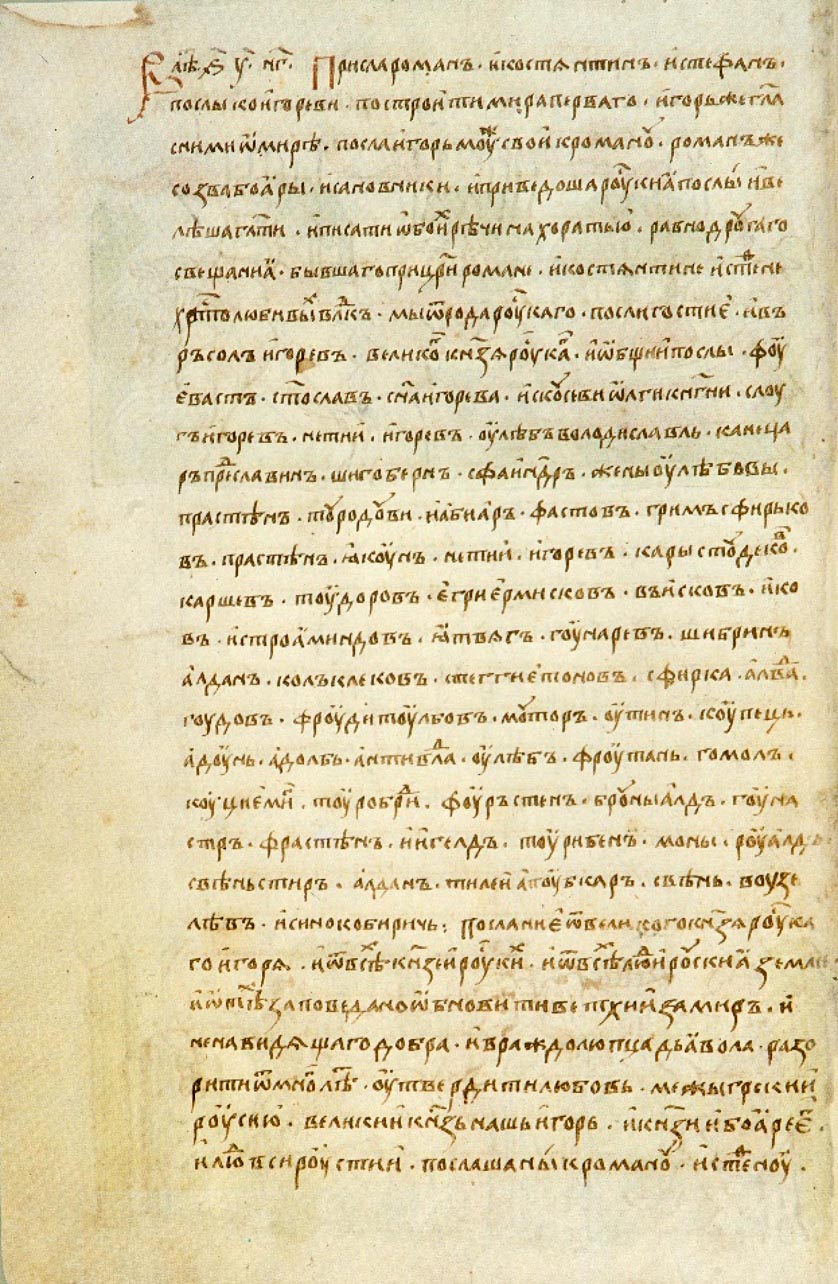 В лѣ҇. ҂ѕ҃. у҃. н҃г. Присла романъ. и костянтинъ. и стефанъ.
послы ко игореви. построити мира перваго. игорь же гл҃а
с ними ѿ мирѣ. посла игорь моуж҇ свои к романоу. романъ же
созва боѧры. и сановники. и приведоша роус҇киѧ послы и ве
лѣша гл҃ати. и писати ѿбоих҇ рѣчи на хоратью. равно дроугаго
свещаниѧ. бывшаго при цр҃и романе. и костянтине и стеф҇не
хр҇толюбивых҇ влд҇къ. мы ѿ рода роус҇каго. посли и гостие. ивъ
ръ солъ игоревъ. великог҇ кн҃зя роукаг҇. и ѿбщии посли. фоу
евастъ. ст҃ославъ. сн҃а игорева. искоусеви ѿлги кнг҇ни. слоу
гъ игоревъ. нетии. игоревъ. оулѣбъ володиславль. канеца
ръ пред҇славинъ. шигобернъ. сфаинд҇ръ. жены оулѣбовы.
прастѣнъ. тоуродоуви. либиаръ. фастовъ. гримъ сфирько
въ. прастѣнъ. ꙗкоунъ. нетии. игоревъ. кары стоудеков҇.
каршевъ. тоудоровъ. егри ермисковъ. въисковъ. ико
въ. истро аминдовъ. ꙗтвягъ. гоунаревъ. шибринъ
алданъ. колъклековъ. стегги етоновъ. сфирка. алвад҇.
гоудовъ. фроуди тоулбовъ. моуторъ. оутинъ. коупець.
адоунь. адолбь. антивлад҇. оулѣбъ. фроутань. гомолъ.
коуци емиг҇. тоуробрид҇. фоуръстенъ. броуны алдъ. гоуна
стръ. фрастѣнъ. ингелдъ. тоурибенъ. моны. роуалдъ
свѣньстиръ. алданъ. тилеи апоубкаръ. свѣнь. воузе
лѣвъ. и синокобиричь: Послание ѿ великого кн҃зя роус҇ка
го игоря. и ѿ всѣх҇ кн҃зеи роус҇ких҇. и ѿ всѣх҇ люд҇и роускиа земли
и ѿ тѣх҇ заповедано ѿбновити ветхии замиръ. и
ненавидящаго добра. и враждолюпца дьавола. разо
рити ѿ мног҇ лѣт҇. оутвердити любовь. межы греки и
роусию. великии кн҃зь нашь игорь. и кн҃зи и боаре ег҇.
и люд҇ вси роустии. послаша ны к романоу. и стеф҇ноу.